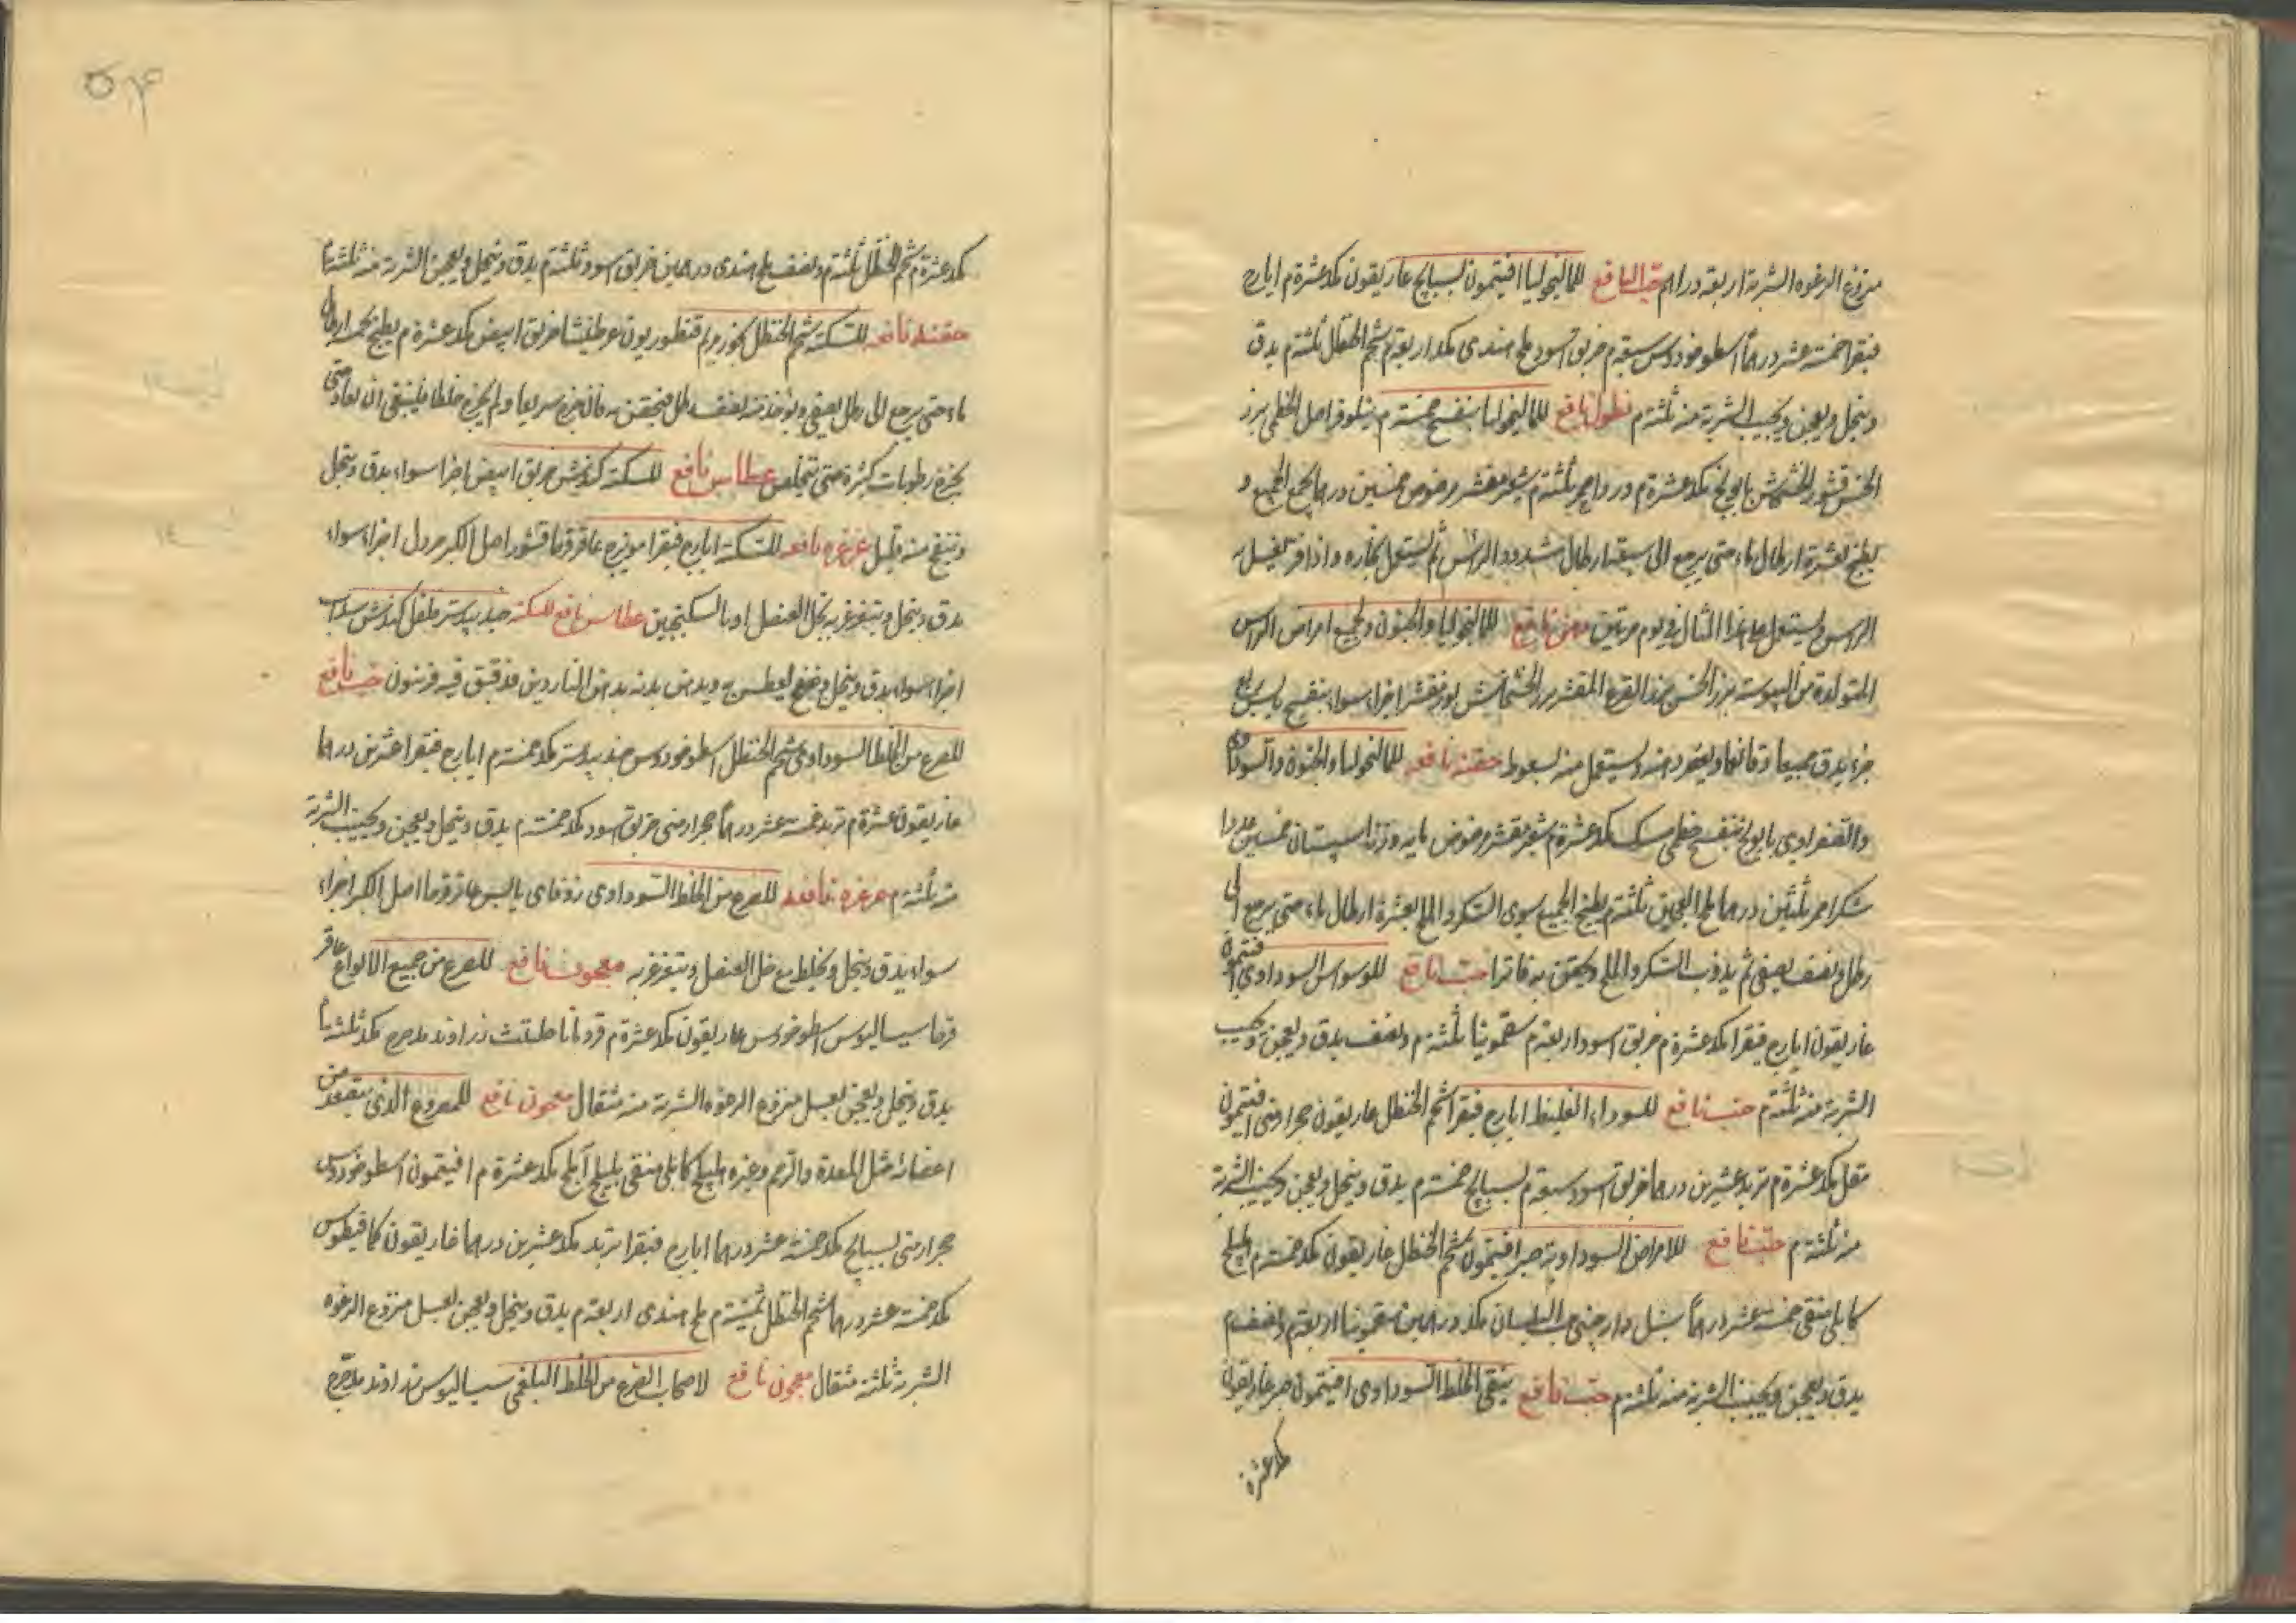 منزوع الرغوه الشربة اربعة دراهم حب النافع للمالنخوليا افتيمون بسبايج غاريقون مكد عشرة م ايارج
فيقرا خمسة عشر درهماً اسطوخودوس سبعة م خربق اسود ملح هندى مكد اربعة م شحم الحنظل ثلثة م يدق
وينخل ويعجن ويحبب الشربة منه ثلثة م نطول نافع للمالنخوليا بنفسج خمسة م نيلوفر اصل الخطمى بزر
الخس قشور الخشخاش بابونج مكد عشرة م ورد احمر ثلثة م شعير مقشر مرضوض خمسين درهما يجمع الجميع و
يطبخ بعشرة ارطال ماء حتى يرجع الى سبعة ارطال مشدود الراس ثم يستعمل بخاره واذا فتر يغسل به
الراس ويستعمل على هذا المثال في يوم مرتين نافع للمالنخوليا والجنون وجميع امراض الراس
المتولدة من اليبوسة بزر الخس بزر القرع المقشر بزر الخشخاش لوز مقشر اجزاء سواء بنفسج يابس ربع
جزء يدق جميعا ويستعمل منه لسعوط حقنة نافعه للمالنخوليا والجنون والسوداوى
والصفراوى بابونج بنفسج خطمى مكد عشرة م شعير مقشر مرضوض سپستان خمسين عددا
شكر احمر ثلثين درهما ملح العجين ثلثة م يطبخ الجميع سوى الشكر والملح بعشرة ارطال ماء حتى يرجع الى
رطل ونصف يصفى ثم يذوب الشكر والملح ويحقن به فاترا حب نافع للوسواس السوداوي افتيمون
غاريقون ايارج فيقرا مكد عشرة م خربق اسود اربعة م سقمونيا ثلثة م ونصف يدق ويعجن ويحبب
الشربة منه ثلثة م حب نافع للسوداء الغليظ ايارج فيقرا شحم الحنظل غاريقون حجر ارمنى افتيمون
مقل مكد عشرة م تربد عشرين درهما خربق اسود سبعة م بسبايج خمسة م يدق وينخل ويعجن ويحبب الشربة
منه ثلثة م حب نافع للامراض السوداوية صبر افتيمون شحم الحنظل غاريقون مكد خمسة م هليلج
كابلى منقى خمسة عشر درهماً سنبل دارچينى حب البلسان مكد درهمين سقمونيا اربعة م ونصف م
يدق ويعجن ويحبب الشربة منه ثلثة م حب نافع ينقى الخلط السوداوى افتيمون صبر غاريقون
مكد عشرة
۵۴
مكد عشرة م شحم الحنظل ثلثة م ونصف ملح هندى درهمين خربق اسود ثلثة م يدق وينخل ويعجن الشربة منه ثلثة م
حقنة نافعه للسكتة شحم الحنظل بخور مريم قنطوريون عرطنيثا خربق ابيض مكد عشرة م يطبخ بخمسة ارطال
ماء حتى يرجع الى رطل يصفى ويؤخذ منه نصف رطل فيحقن به فان خرج سريعا ولم يخرج خلطا فينبغى ان يعاد حتى
يخرج رطوبات كثيرة حتى يتخلص عطاس نافع للسكتة كندش خربق ابيض اجزا سواء يدق وينخل
وينفخ منه قليل غرغره نافعه للسكتة ايارج فيقرا مويزج عاقرقرحا قشور اصل الكبر خردل اجزاء سواء
يدق وينخل ويتغرغر به بخل العنصل او بالسكنجبين عطاس نافع للسكته جندبيدستر فلفل كندش سداب
اجزاء سواء يدق وينخل وينفخ ليعطس به ويدهن بدنه بدهن الناردين قد فتق فيه فرفيون حب نافع
للصرع من الخلط السوداوى شحم الحنظل اسطوخودوس جندبيدستر مكد خمسة م ايارج فيقرا عشرين درهما
غاريقون عشرة م تربد خمسة عشر درهماً حجر ارمنى خربق اسود مكد خمسة م يدق وينخل ويعجن ويحبب الشربة
منه ثلثة م غرغره نافعه للصرع من الخلط السوداوى زوفاى يابس عاقرقرحا اصل الكبر اجزاء
سواء يدق وينخل ويخلط مع خل العنصل ويتغرغر به معجون نافع للصرع من جميع الانواع عاقر
قرحا سيساليوس اسطوخودس غاريقون مكد عشرة م قردمانا حلتيت زراوند مدحرج مكد ثلثة م
يدق وينخل ويعجن بعسل منزوع الرغوه الشربة منه مثقال معجون نافع للمصروع الذى يتصعد من
اعضائه مثل المعدة والرحم وغيره هليلج كابلى منقى بليلج آملج مكد عشرة م افتيمون اسطوخودوس
حجر ارمنى بسبايج مكد خمسة عشر درهما ايارج فيقرا تربد مكد عشرين درهما غاريقون كمافيطوس
مكد خمسة عشر درهما شحم الحنظل ثمنية م ملح هندى اربعة م يدق وينخل ويعجن بعسل منزوع الرغوه
الشربة ثلثة مثقال معجون نافع لاصحاب الصرع من الخلط البلغمى سيساليوس زراوند مدحرج